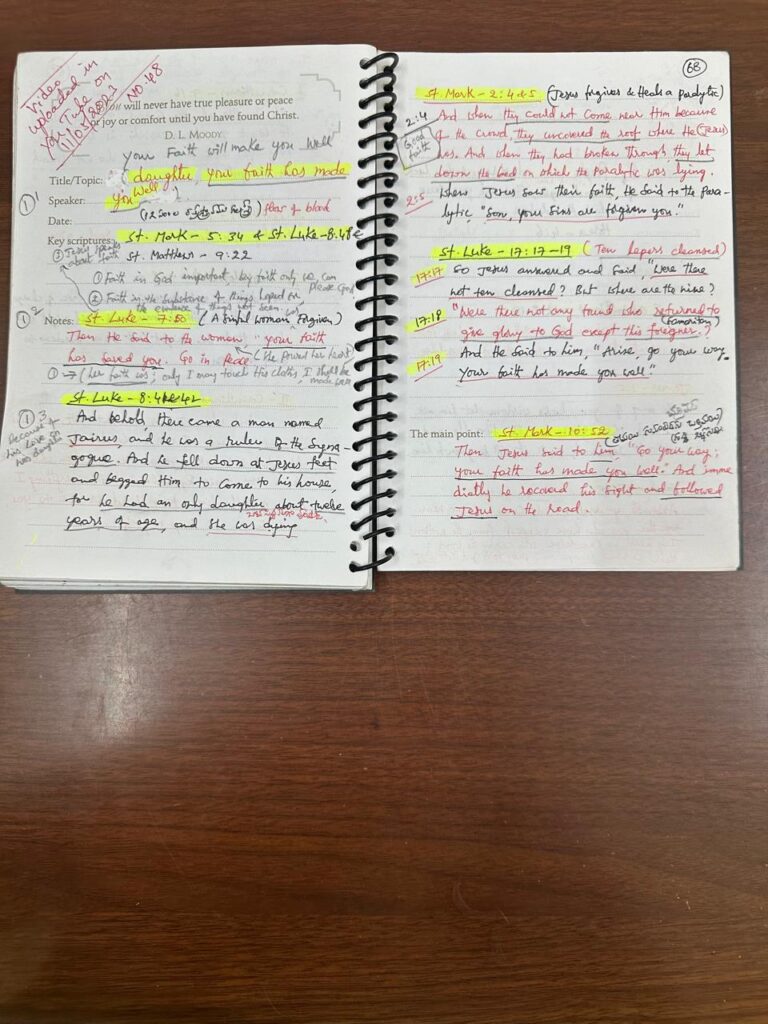 Video
uploaded in
You Tube on
11/05/2023
NO:48
You will never have true pleasure or peace
or joy or comfort until you have found Christ.
D. L. MOODY
Your Faith will make you well
Title/Topic: daughter, your faith has made
Speaker: you well
flow of blood
Date:
Key scriptures: St. Mark - 5:34 & St. Luke - 8:48
St. Matthews - 9:22
about faith
① Faith in God important, by faith only we can please God
② Faith is the substance of things hoped for,
the evidence of things not seen
① 2
Notes: St. Luke - 7:50 (A sinful woman Forgiven)
Then He said to the woman, "your faith
has saved you. Go in peace
① → (her faith was; only I may touch His cloths, I shall be made well
St. Luke - 8:41&42
① 3
Because of
his Love
daughter
And behold, there came a man named
Jairus, and he was a ruler of the Syna-
gogue. And he fell down at Jesus feet
and begged Him to come to his house,
for he had an only daughter about twelve
years of age, and she was dying
68
St. Mark - 2:4&5 (Jesus forgives & Heals a paralytic)
2:4 And when they could not come near Him because
of the crowd, they uncovered the roof where He (Jesus)
Good
faith
was. And when they had broken through, they let
down the bed on which the paralytic was lying.
2:5 When Jesus saw their faith, He said to the Para-
lytic "Son, your sins are forgiven you."
St. Luke - 17:17-19 (Ten lepers cleansed)
17:17 So Jesus answered and said, "Were there
not ten cleansed? But where are the nine?
17:18 "Were there not any found who returned to
give glory to God except this foreigner?
(Samaritan)
17:19 And He said to him, "Arise, go your way.
Your faith has made you well."
The main point: St. Mark - 10:52
Then Jesus said to him, "Go your way;
your faith has made you well." And imme
diatly he recoved his sight and followed
Jesus on the road.